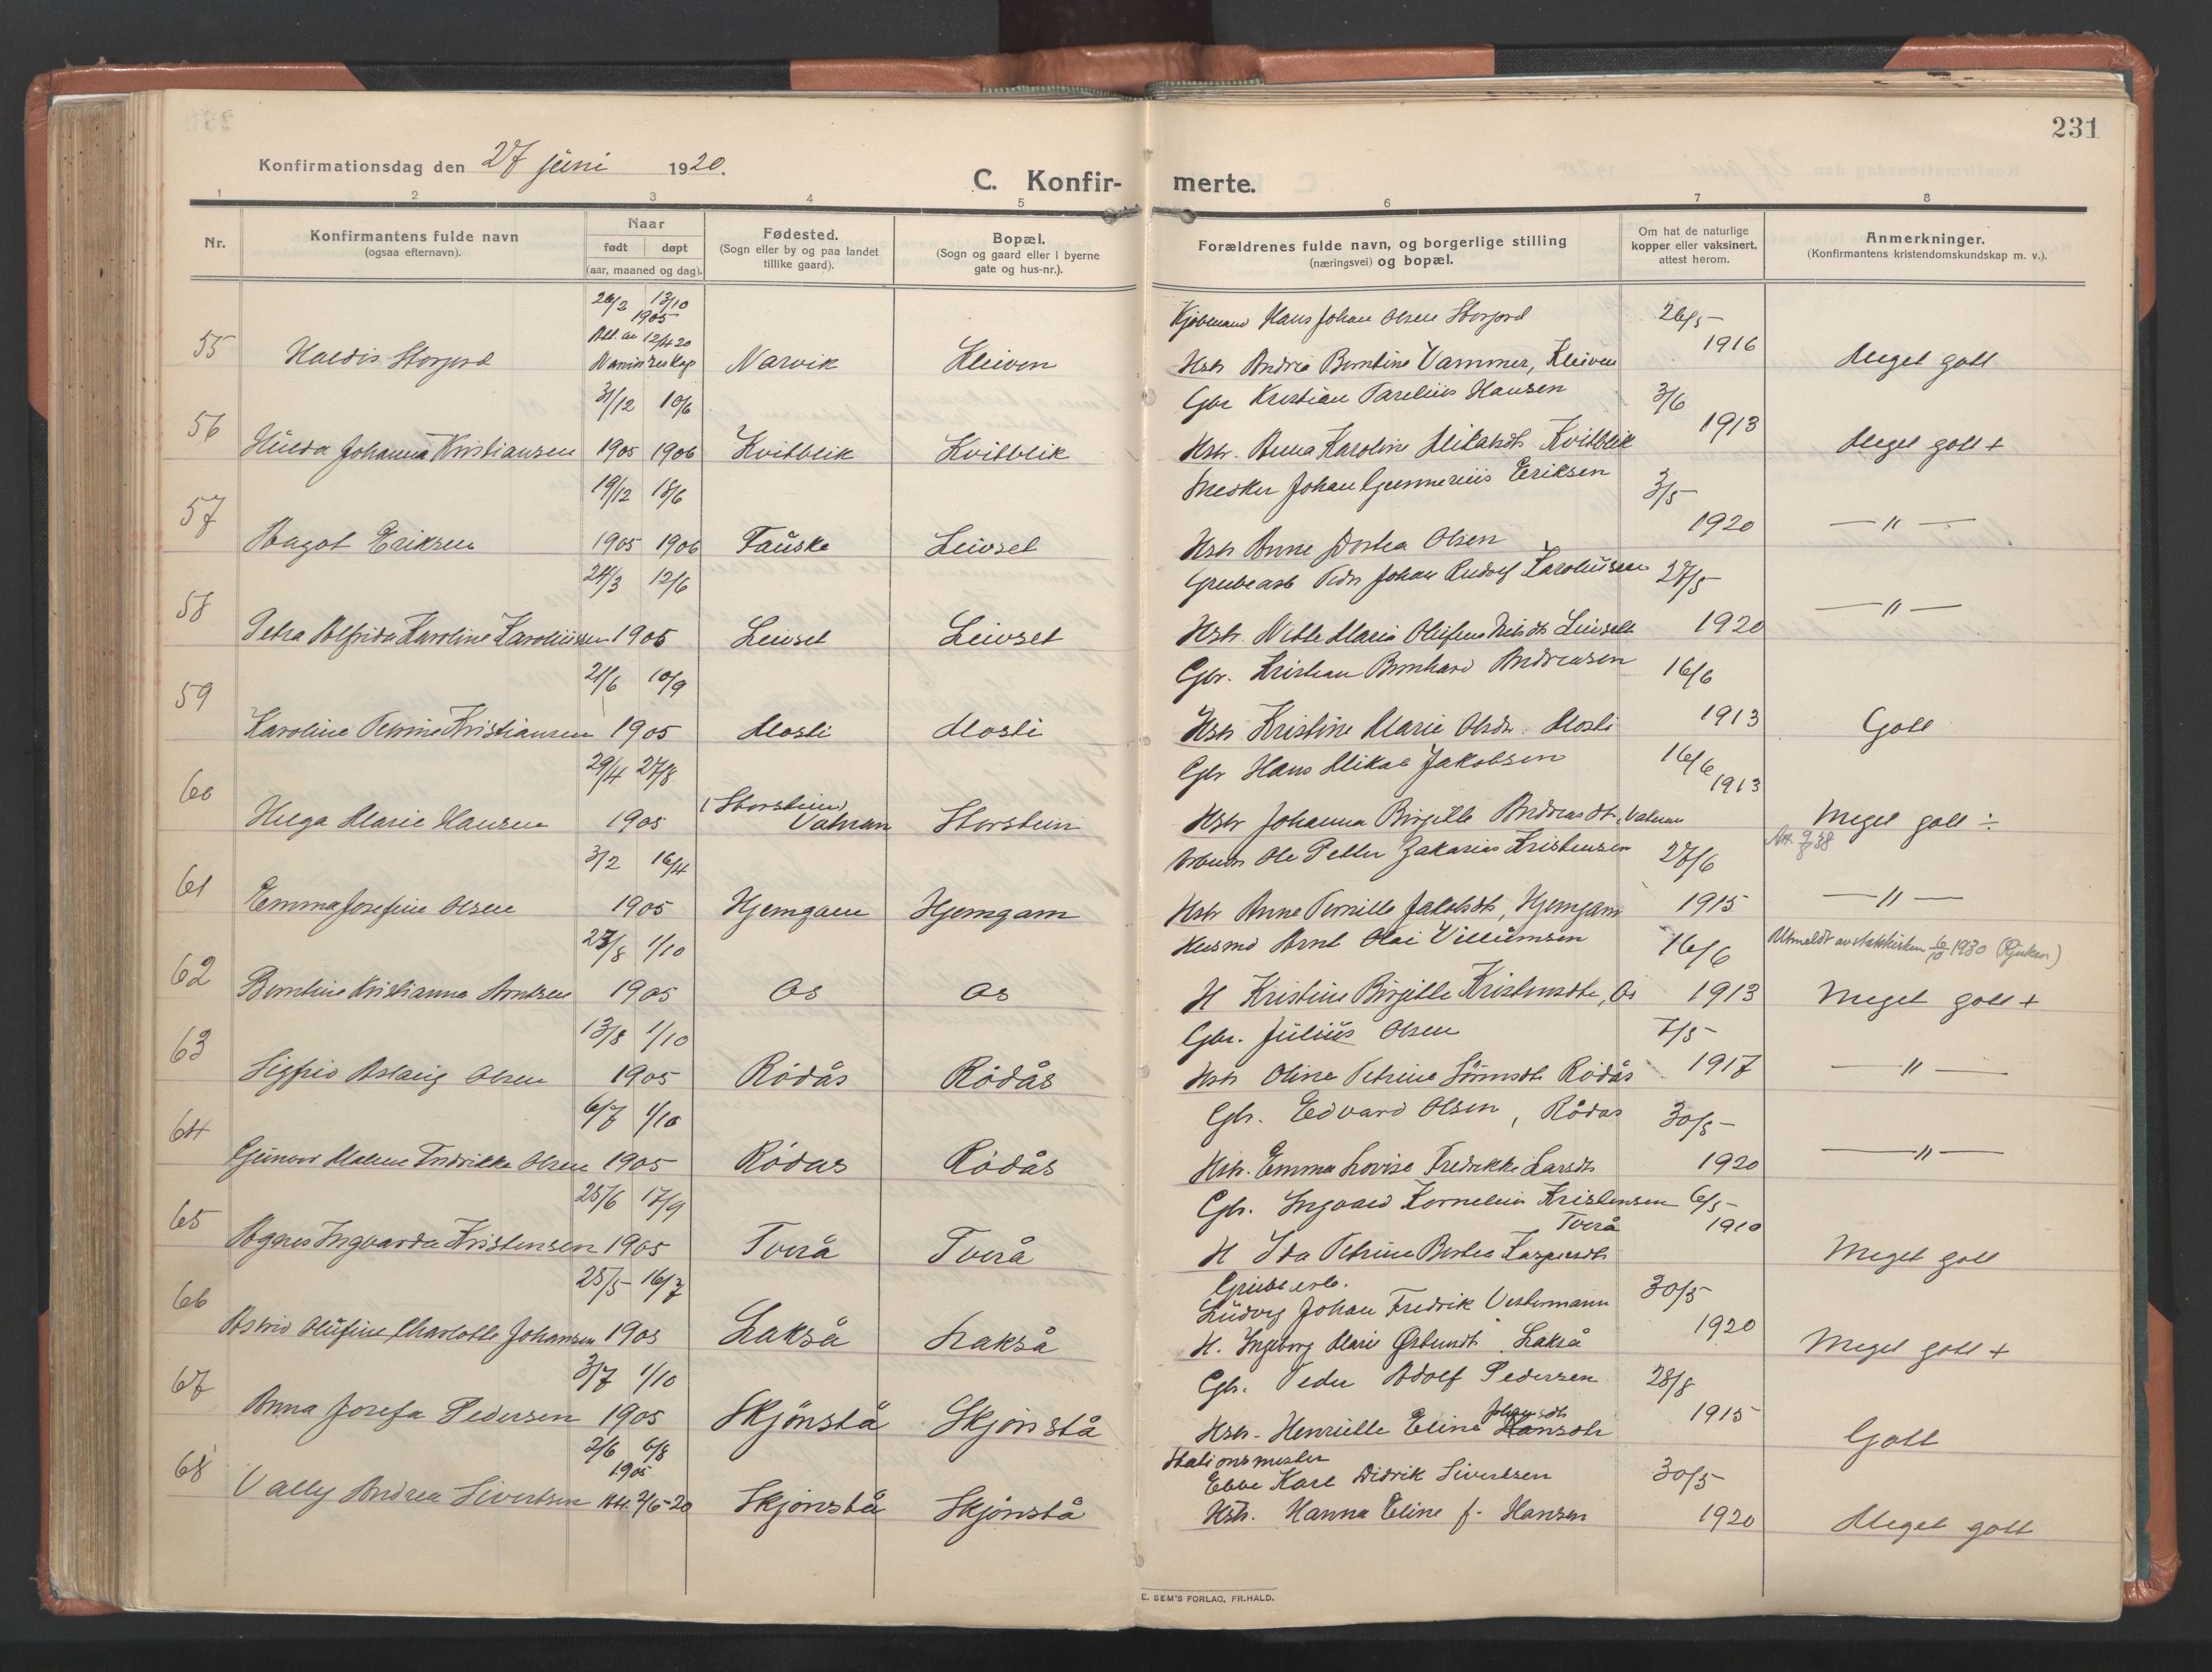 231
Konfirmationsdag den 27 juni 1920.
C. Konfir- merte.
1 2 3 4 5 6 7 8
Nr.
Konfirmantens fulde navn
(ogsaa efternavn).
Naar
født døpt
(aar, maaned og dag).
Fødested.
(Sogn eller by og paa landet
tillike gaard).
Bopæl.
(Sogn og gaard eller i byerne
gate og hus-nr.).
Forældrenes fulde navn, og borgerlige stilling
(næringsvei) og bopæl.
Om hat de naturlige
kopper eller vaksinert,
attest herom.
Anmerkninger.
(Konfirmantens kristendomskundskap m. v.).
26/2 13/10 Kjøbmand Hans Johan Olsen Storjord 26/5
1905
Att. av 12/4 20 1916
55 Haldis Storjord Narvik Kleiven Hstr Andrea Berntine Vammer, Kleiven Meget godt
31/12 10/6 Gbr Kristian Parelius Hansen 3/6
1913
56 Hulda Johanna Kristiansen 1905 1906 Kvitblik Kvitblik Hstr. Anna Karoline Mikalsdt Kvitblik Meget godt +
19/12 18/6 Snedker Johan Gunnerius Eriksen 3/5
1920
57 Dagot Eriksen 1905 1906 Fauske Leivset Hstr Anne Dortea Olsen — " —
24/3 12/6 Grubearb Peder Johan Rudolf Karoliussen 27/5
58 Petra Alfrida Karoline Karoliussen 1905 Leivset Leivset Hstr. Nette Maria Olufine Nilsdt Leivset 1920 — " —
21/6 10/9 Gbr. Kristian Bernhard Andreasen 16/6
59 Karoline Petrine Kristiansen 1905 Mosti Mosti Hstr Kristine Marie Olsdt. Mosti 1913 Godt
29/4 27/8 Gbr Hans Mikal Jakobsen 16/6
1913
60 Helga Marie Hansen 1905 (Storstein) Vatnan Storstein Hstr Johanna Birgitte Andreasdt, Vatnan Meget godt ÷
Att 9/8 38
3/2 16/4 Arbeids Ole Petter Zakarias Kristensen 27/6
61 Emma Josefine Olsen 1905 Hjemgam Hjemgam Hstr Anne Pernille Jakobsdt, Hjemgam 1915 — " —
23/8 1/10 Husmd Arnt Olai Villumsen 16/6 Utmeldt av statskirken 6/10 1930 (Rjukan)
62 Berntine Kristianna Arntsen 1905 Os Os H Kristine Birgitte Kristensdtr, Os 1913 Meget godt +
13/8 1/10 Gbr. Julius Olsen 7/5
63 Sigfrid Aslaug Olsen 1905 Rödås Rödås Hstr Oline Petrine Sörensdt Rödås 1917 — " —
6/7 1/10 Gbr. Edvard Olsen, Rödås 30/5
64 Gunvor Malene Fredrikke Olsen 1905 Rödas Rödås Hstr. Emma Lovise Fredrikke Larsdt 1920 — " —
25/6 17/9 Gbr. Ingvald Kornelius Kristensen 6/5
Tverå 1910
65 Agnes Ingvarda Kristensen 1905 Tverå Tverå H Ida Petrine Bertea Kaspersdt Meget godt
25/5 16/7 Grubearb.
Ludvig Johan Fredrik Vestermann 30/5
66 Astrid Olufine Charlotte Johansen 1905 Lakså Lakså H. Ingeborg Marie Østensdt Lakså 1920 Meget godt +
3/7 1/10 Gbr. Peder Adolf Pedersen 28/8
Johansdt
67 Anna Josefa Pedersen 1905 Skjönstå Skjönstå Hstr. Henriette Eline Hansdtr 1915 Godt
2/6 6/8 Stationsmester
1905 Ebbe Karl Didrik Sivertsen 30/5
68 Vally Andrea Sivertsen Att. 2/6-20 Skjönstå Skjönstå Hstr. Hanna Eline f. Hansen 1920 Meget godt
E. SEM'S FORLAG, FR.HALD.